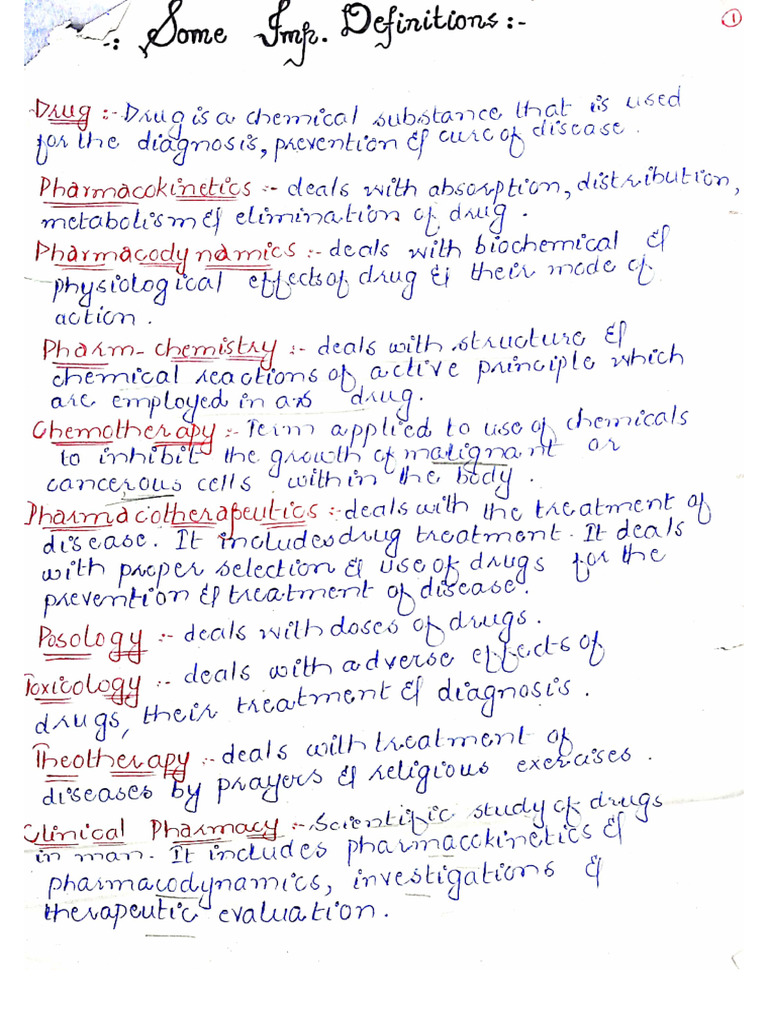 -: Some Imp. Definitions:-
1
Drug :- Drug is a chemical substance that is used
for the diagnosis, prevention & cure of disease.
Pharmacokinetics :- deals with absorption, distribution,
metabolism & elimination of drug.
Pharmacodynamics :- deals with biochemical &
physiological effects of drug & their mode of
action.
Pharm-chemistry :- deals with structure &
chemical reactions of active principle which
are employed in as drug.
Chemotherapy :- Term applied to use of chemicals
to inhibit the growth of malignant or
cancerous cells within the body.
Pharmacotherapeutics :- deals with the treatment of
disease. It includes drug treatment. It deals
with proper selection & use of drugs for the
prevention & treatment of disease.
Posology :- deals with doses of drugs.
Toxicology :- deals with adverse effects of
drugs, their treatment & diagnosis.
Theotherapy :- deals with treatment of
diseases by prayers & religious exercises.
Clinical Pharmacy :- Scientific study of drugs
in man. It includes pharmacokinetics &
pharmacodynamics, investigations &
therapeutic evaluation.